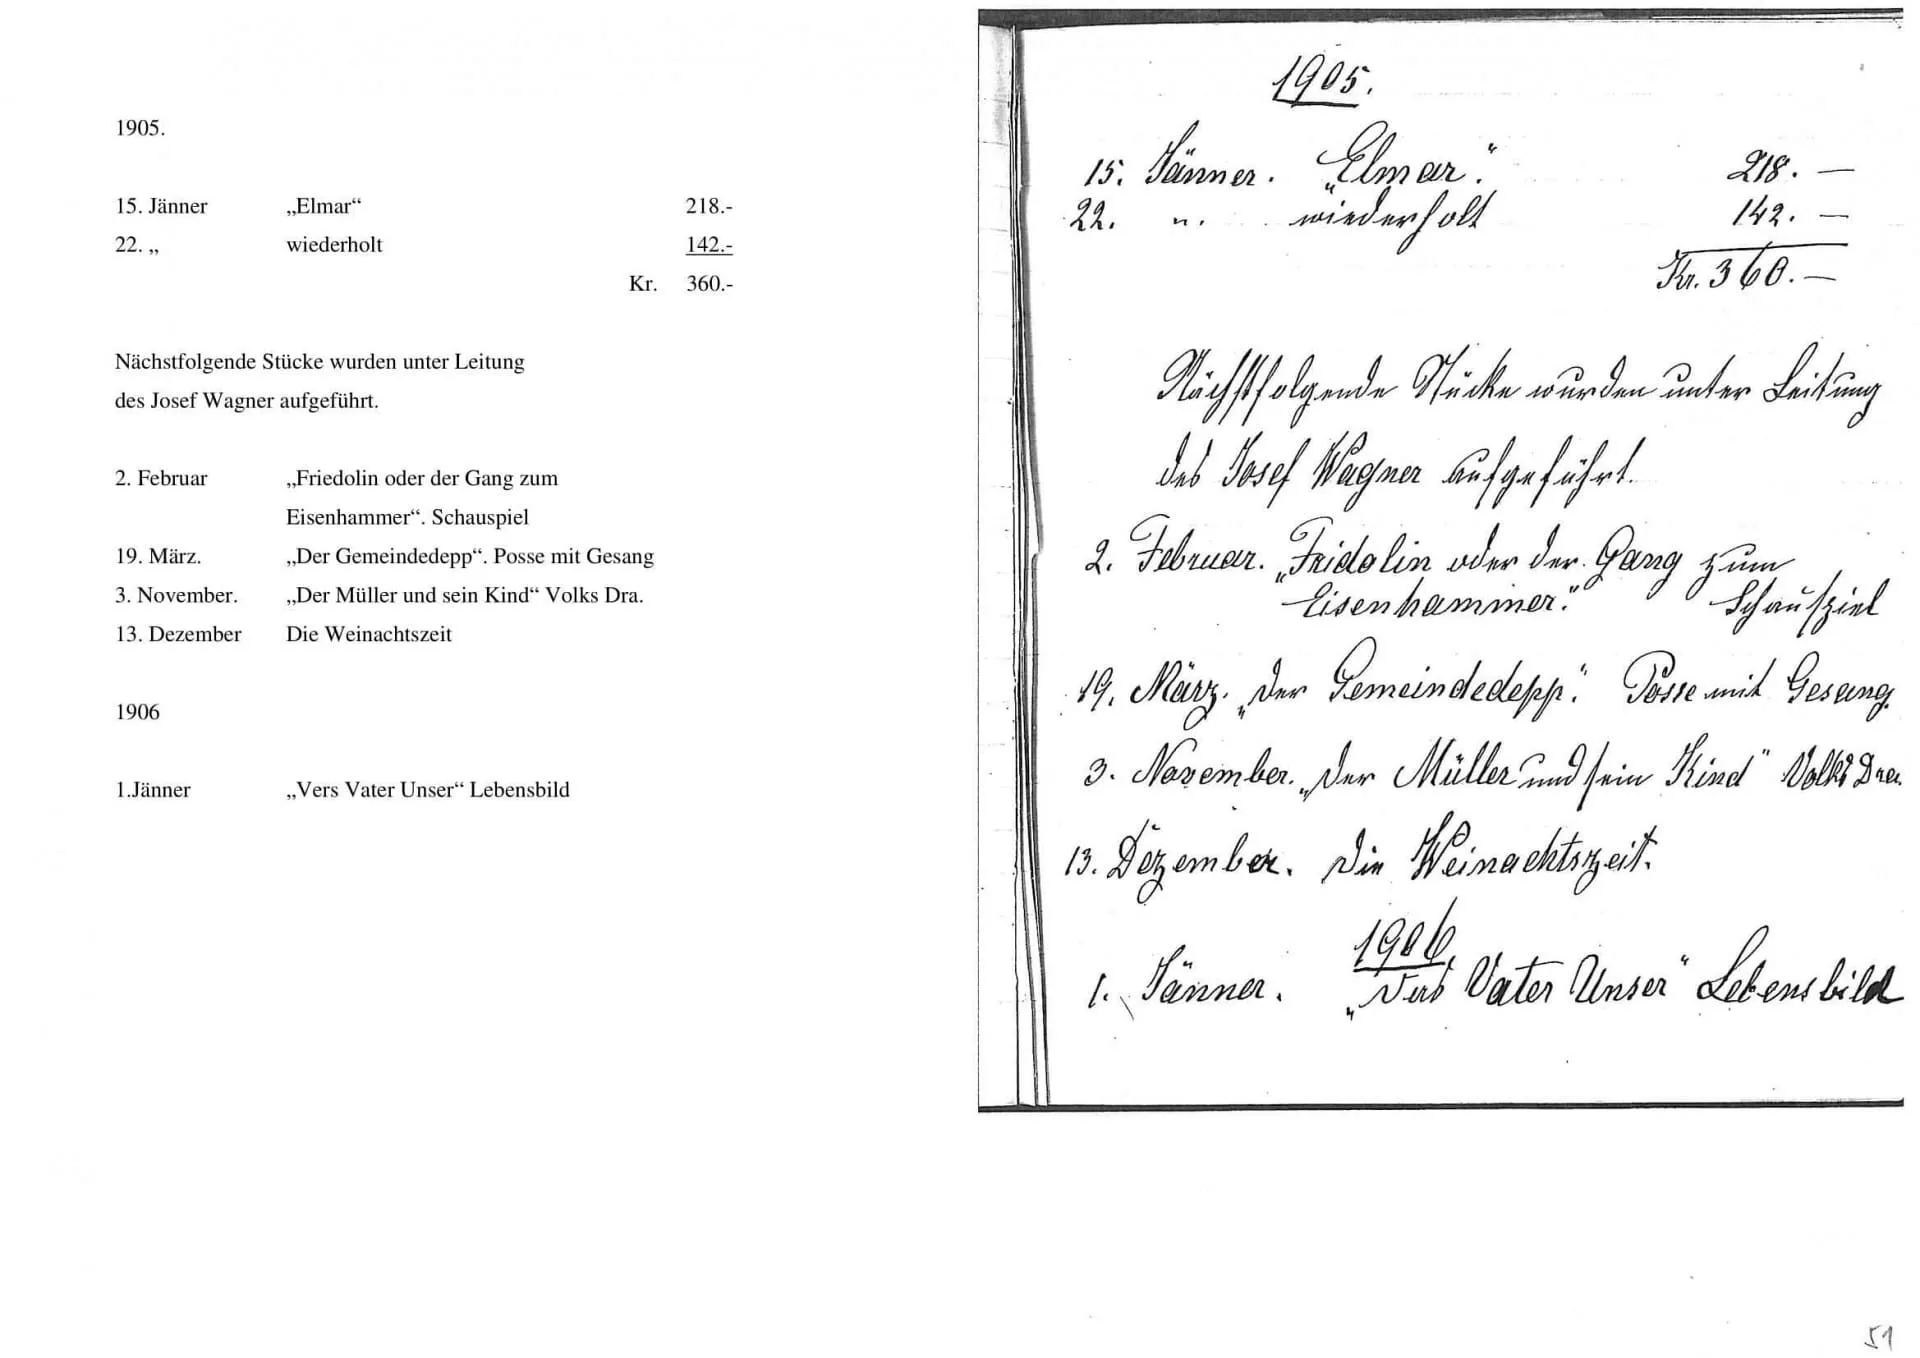 1905.
15. Jänner „Elmar“ 218.-
22. „ wiederholt 142.-
Kr. 360.-
Nächstfolgende Stücke wurden unter Leitung
des Josef Wagner aufgeführt.
2. Februar „Friedolin oder der Gang zum
Eisenhammer“. Schauspiel
19. März. „Der Gemeindedepp“. Posse mit Gesang
3. November. „Der Müller und sein Kind“ Volks Dra.
13. Dezember Die Weinachtszeit
1906
1.Jänner „Vers Vater Unser“ Lebensbild
1905.
15. Jänner. „Elmar“. 218. —
22. „. wiederholt 142. —
Kr. 360. —
Nächstfolgende Stücke wurden unter Leitung
des Josef Wagner aufgeführt.
2. Februar. „Fridolin oder der Gang zum
Eisenhammer.“ Schauspiel
19. März. „Der Gemeindedepp“. Posse mit Gesang.
3. November. „Der Müller und sein Kind“ Volks Dra.
13. Dezember. Die Weinachtszeit.
1906.
1. Jänner. „ Vater Unser“ Lebensbild
51